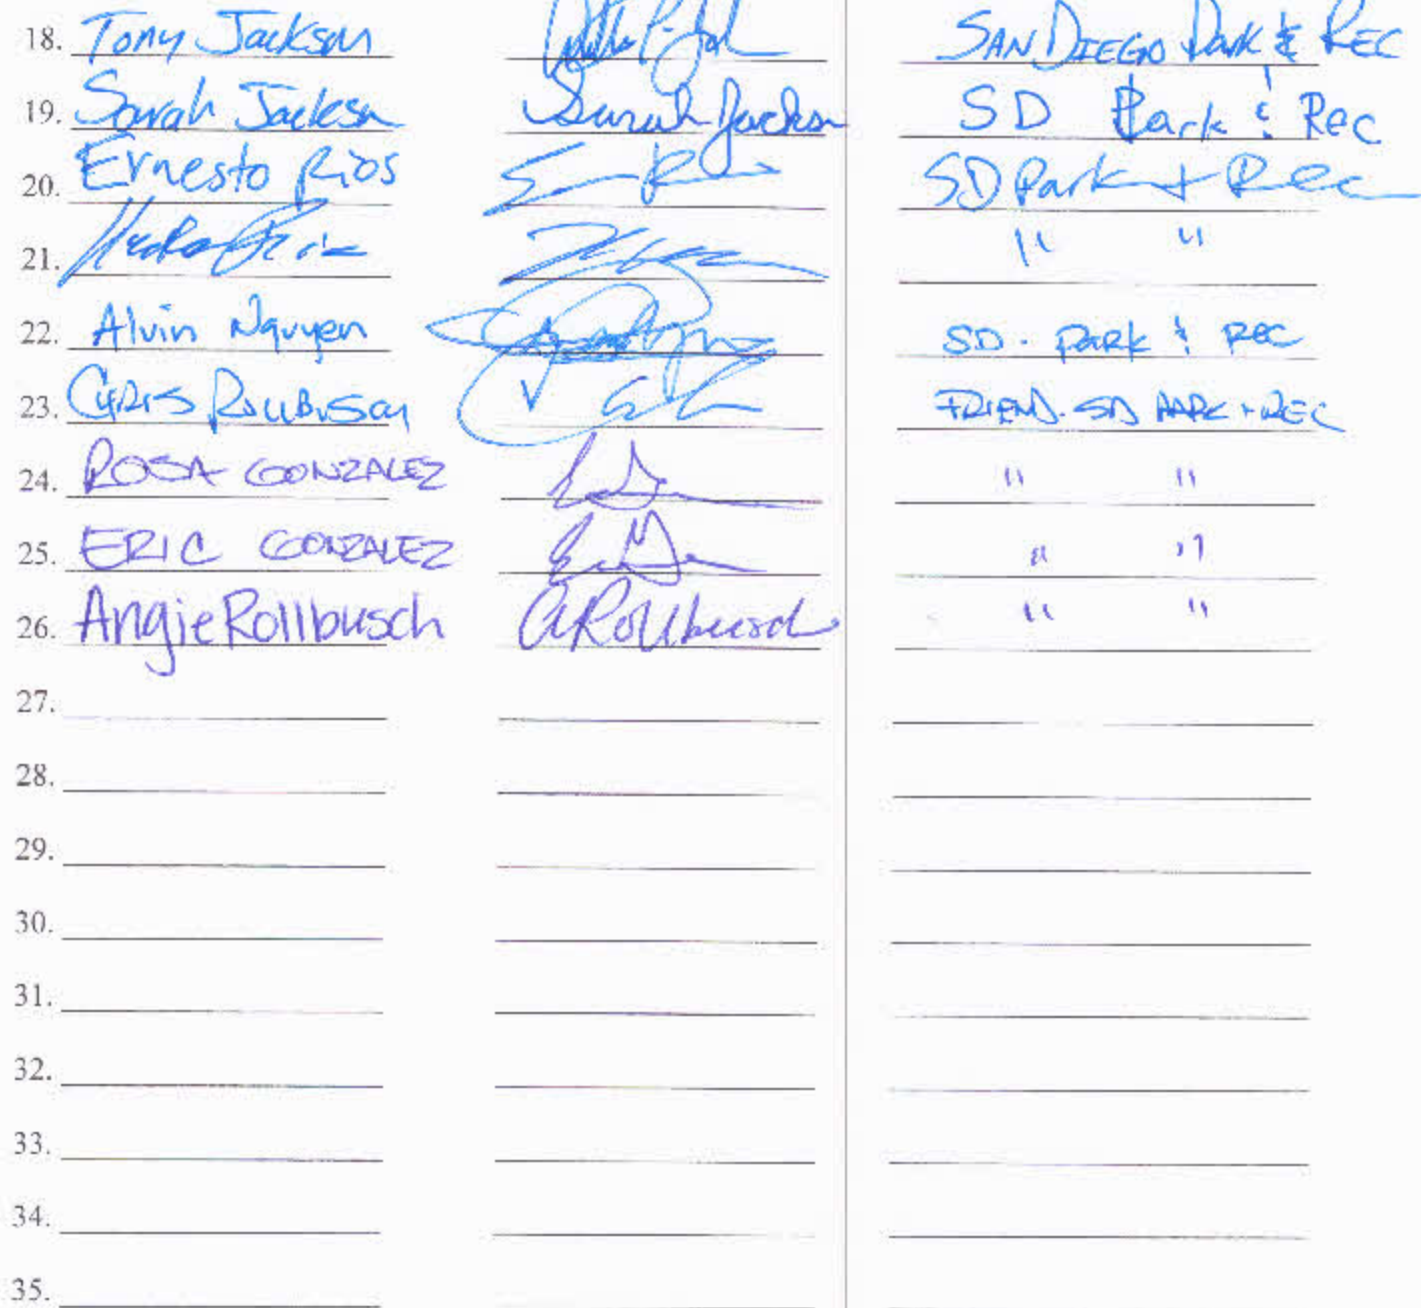 18. Tony Jackson SAN DIEGO Park & REC
19. Sarah Jackson Sarah Jackson SD Park & Rec
20. Ernesto Rios SD Park + Rec
21. " "
22. Alvin Nguyen SD. PARK & REC
23. CHRIS FRIEND. SD PARK + REC
24. ROSA GONZALEZ " "
25. ERIC GONZALEZ " "
26. Angie Rollbusch A Rollbusch " "
27.
28.
29.
30.
31.
32.
33.
34.
35.